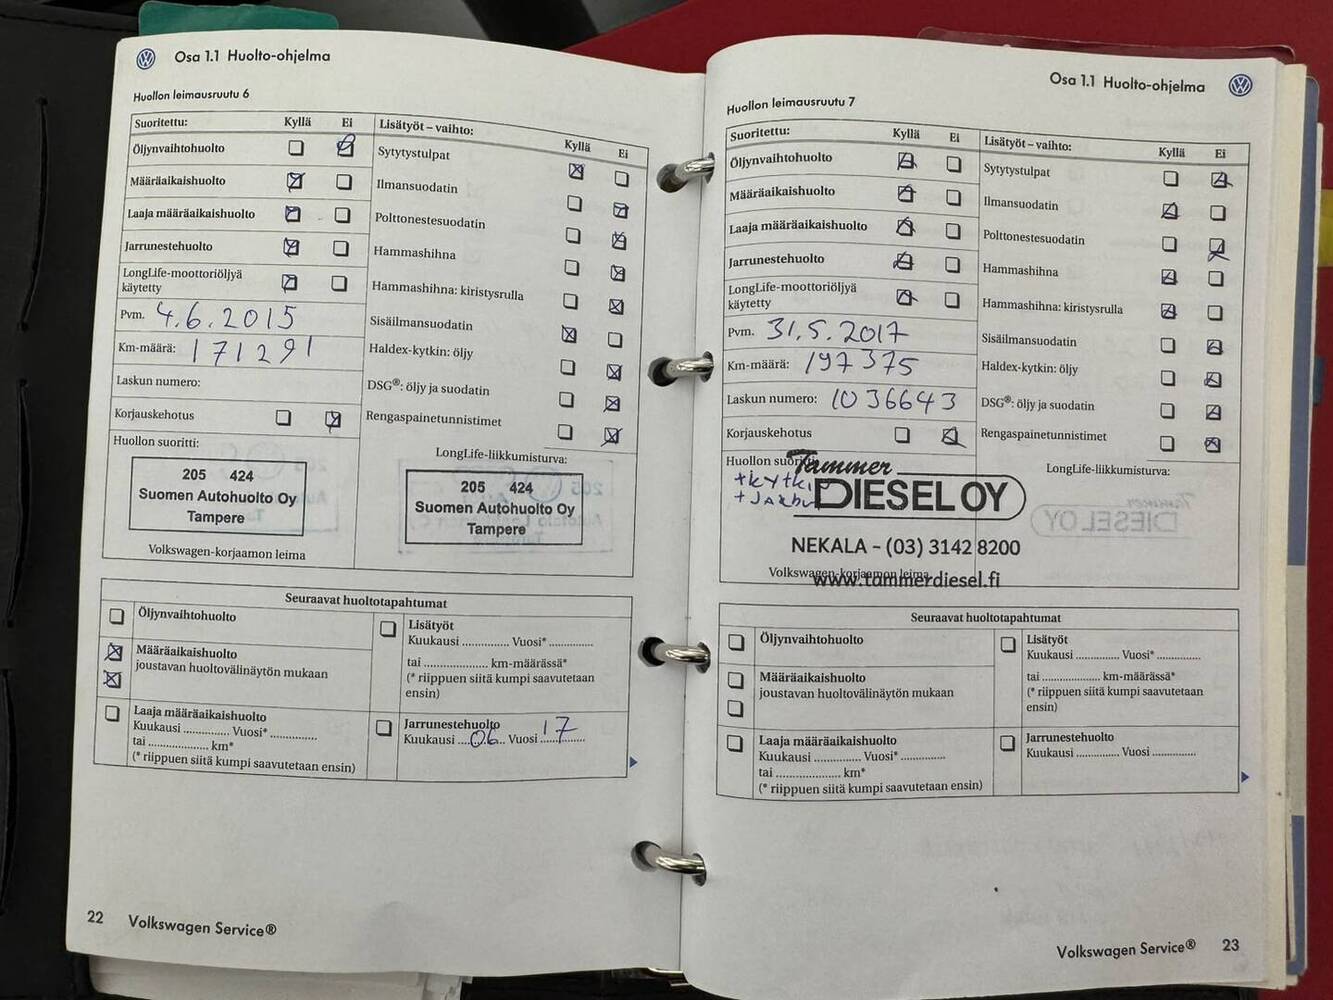 Osa 1.1 Huolto-ohjelma
Huollon leimausruutu 6
Suoritettu: Kyllä Ei
Öljynvaihtohuolto
Määräaikaishuolto
Laaja määräaikaishuolto
Jarrunestehuolto
LongLife-moottoriöljyä
käytetty
Pvm. 4.6.2015
Km-määrä: 171291
Laskun numero:
Korjauskehotus
Huollon suoritti:
205 424
Suomen Autohuolto Oy
Tampere
Volkswagen-korjaamon leima
Lisätyöt – vaihto:
Kyllä Ei
Sytytystulpat
Ilmansuodatin
Polttonestesuodatin
Hammashihna
Hammashihna: kiristysrulla
Sisäilmansuodatin
Haldex-kytkin: öljy
DSG®: öljy ja suodatin
Rengaspainetunnistimet
LongLife-liikkumisturva:
205 424
Suomen Autohuolto Oy
Tampere
Seuraavat huoltotapahtumat
Öljynvaihtohuolto
Määräaikaishuolto
joustavan huoltovälinäytön mukaan
Laaja määräaikaishuolto
Kuukausi .............. Vuosi* ..............
tai .................. km*
(* riippuen siitä kumpi saavutetaan ensin)
Lisätyöt
Kuukausi .............. Vuosi* .............
tai ................... km-määrässä*
(* riippuen siitä kumpi saavutetaan
ensin)
Jarrunestehuolto
Kuukausi ....06.. Vuosi 17
22 Volkswagen Service®
Osa 1.1 Huolto-ohjelma
Huollon leimausruutu 7
Suoritettu: Kyllä Ei
Öljynvaihtohuolto
Määräaikaishuolto
Laaja määräaikaishuolto
Jarrunestehuolto
LongLife-moottoriöljyä
käytetty
Pvm. 31.5.2017
Km-määrä: 197375
Laskun numero: 1036643
Korjauskehotus
Huollon suoritti:
Tammer
DIESEL OY
NEKALA – (03) 3142 8200
Volkswagen-korjaamon leima
www.tammerdiesel.fi
Lisätyöt – vaihto:
Kyllä Ei
Sytytystulpat
Ilmansuodatin
Polttonestesuodatin
Hammashihna
Hammashihna: kiristysrulla
Sisäilmansuodatin
Haldex-kytkin: öljy
DSG®: öljy ja suodatin
Rengaspainetunnistimet
LongLife-liikkumisturva:
Seuraavat huoltotapahtumat
Öljynvaihtohuolto
Määräaikaishuolto
joustavan huoltovälinäytön mukaan
Laaja määräaikaishuolto
Kuukausi .............. Vuosi* ..............
tai .................... km*
(* riippuen siitä kumpi saavutetaan ensin)
Lisätyöt
Kuukausi ............. Vuosi* .............
tai .................... km-määrässä*
(* riippuen siitä kumpi saavutetaan
ensin)
Jarrunestehuolto
Kuukausi .............. Vuosi ..............
Volkswagen Service® 23